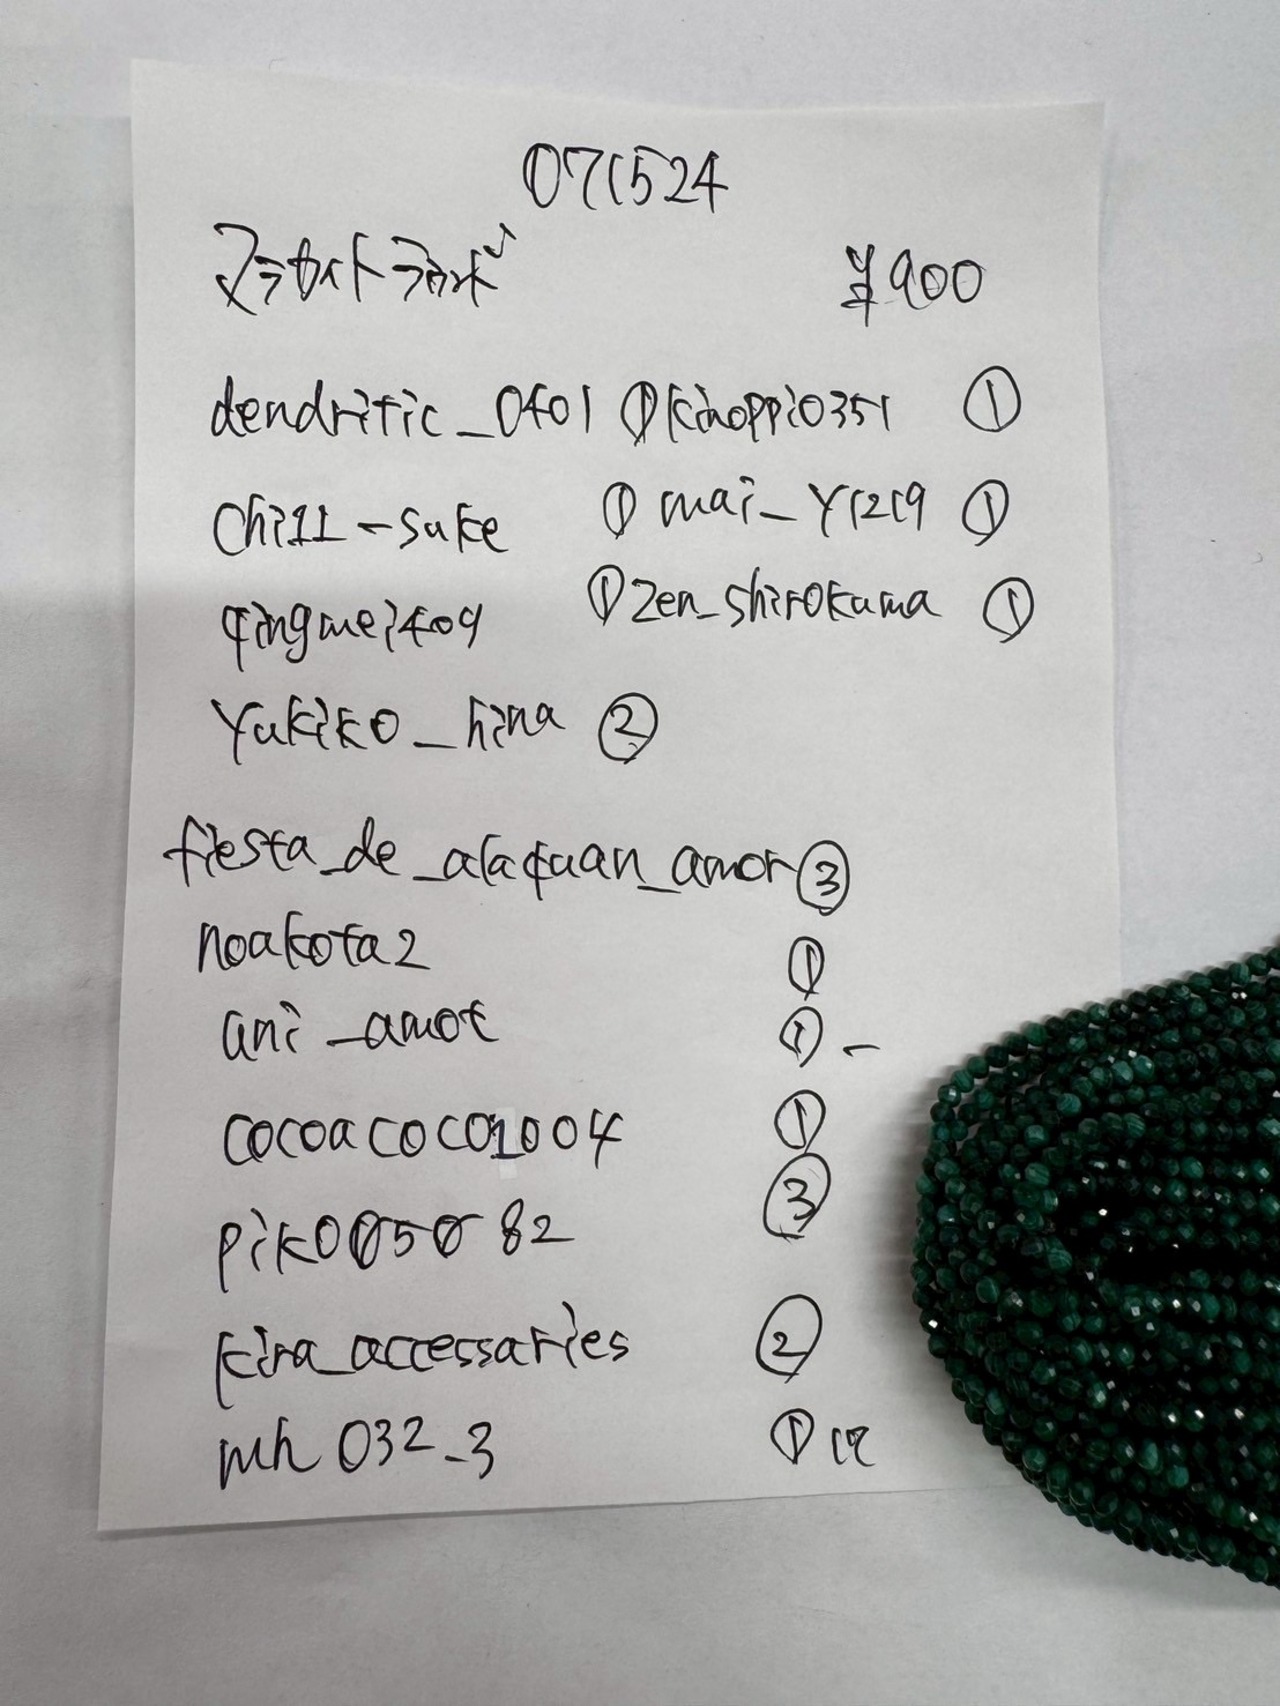 071524
マラカイトラウンド ¥900
dendritic_0401 ① kinoppi0351 ①
chi11-suke ① mai_y1219 ①
qingmei409 ① zen_shirokuma ①
yukiko_hina ②
fiesta_de_alaquan_amor ③
noakota2 ①
ani_amot ① -
cocoacoco1004 ①
pik0050 82 ③
kira_accessaries ②
mh032_3 ①